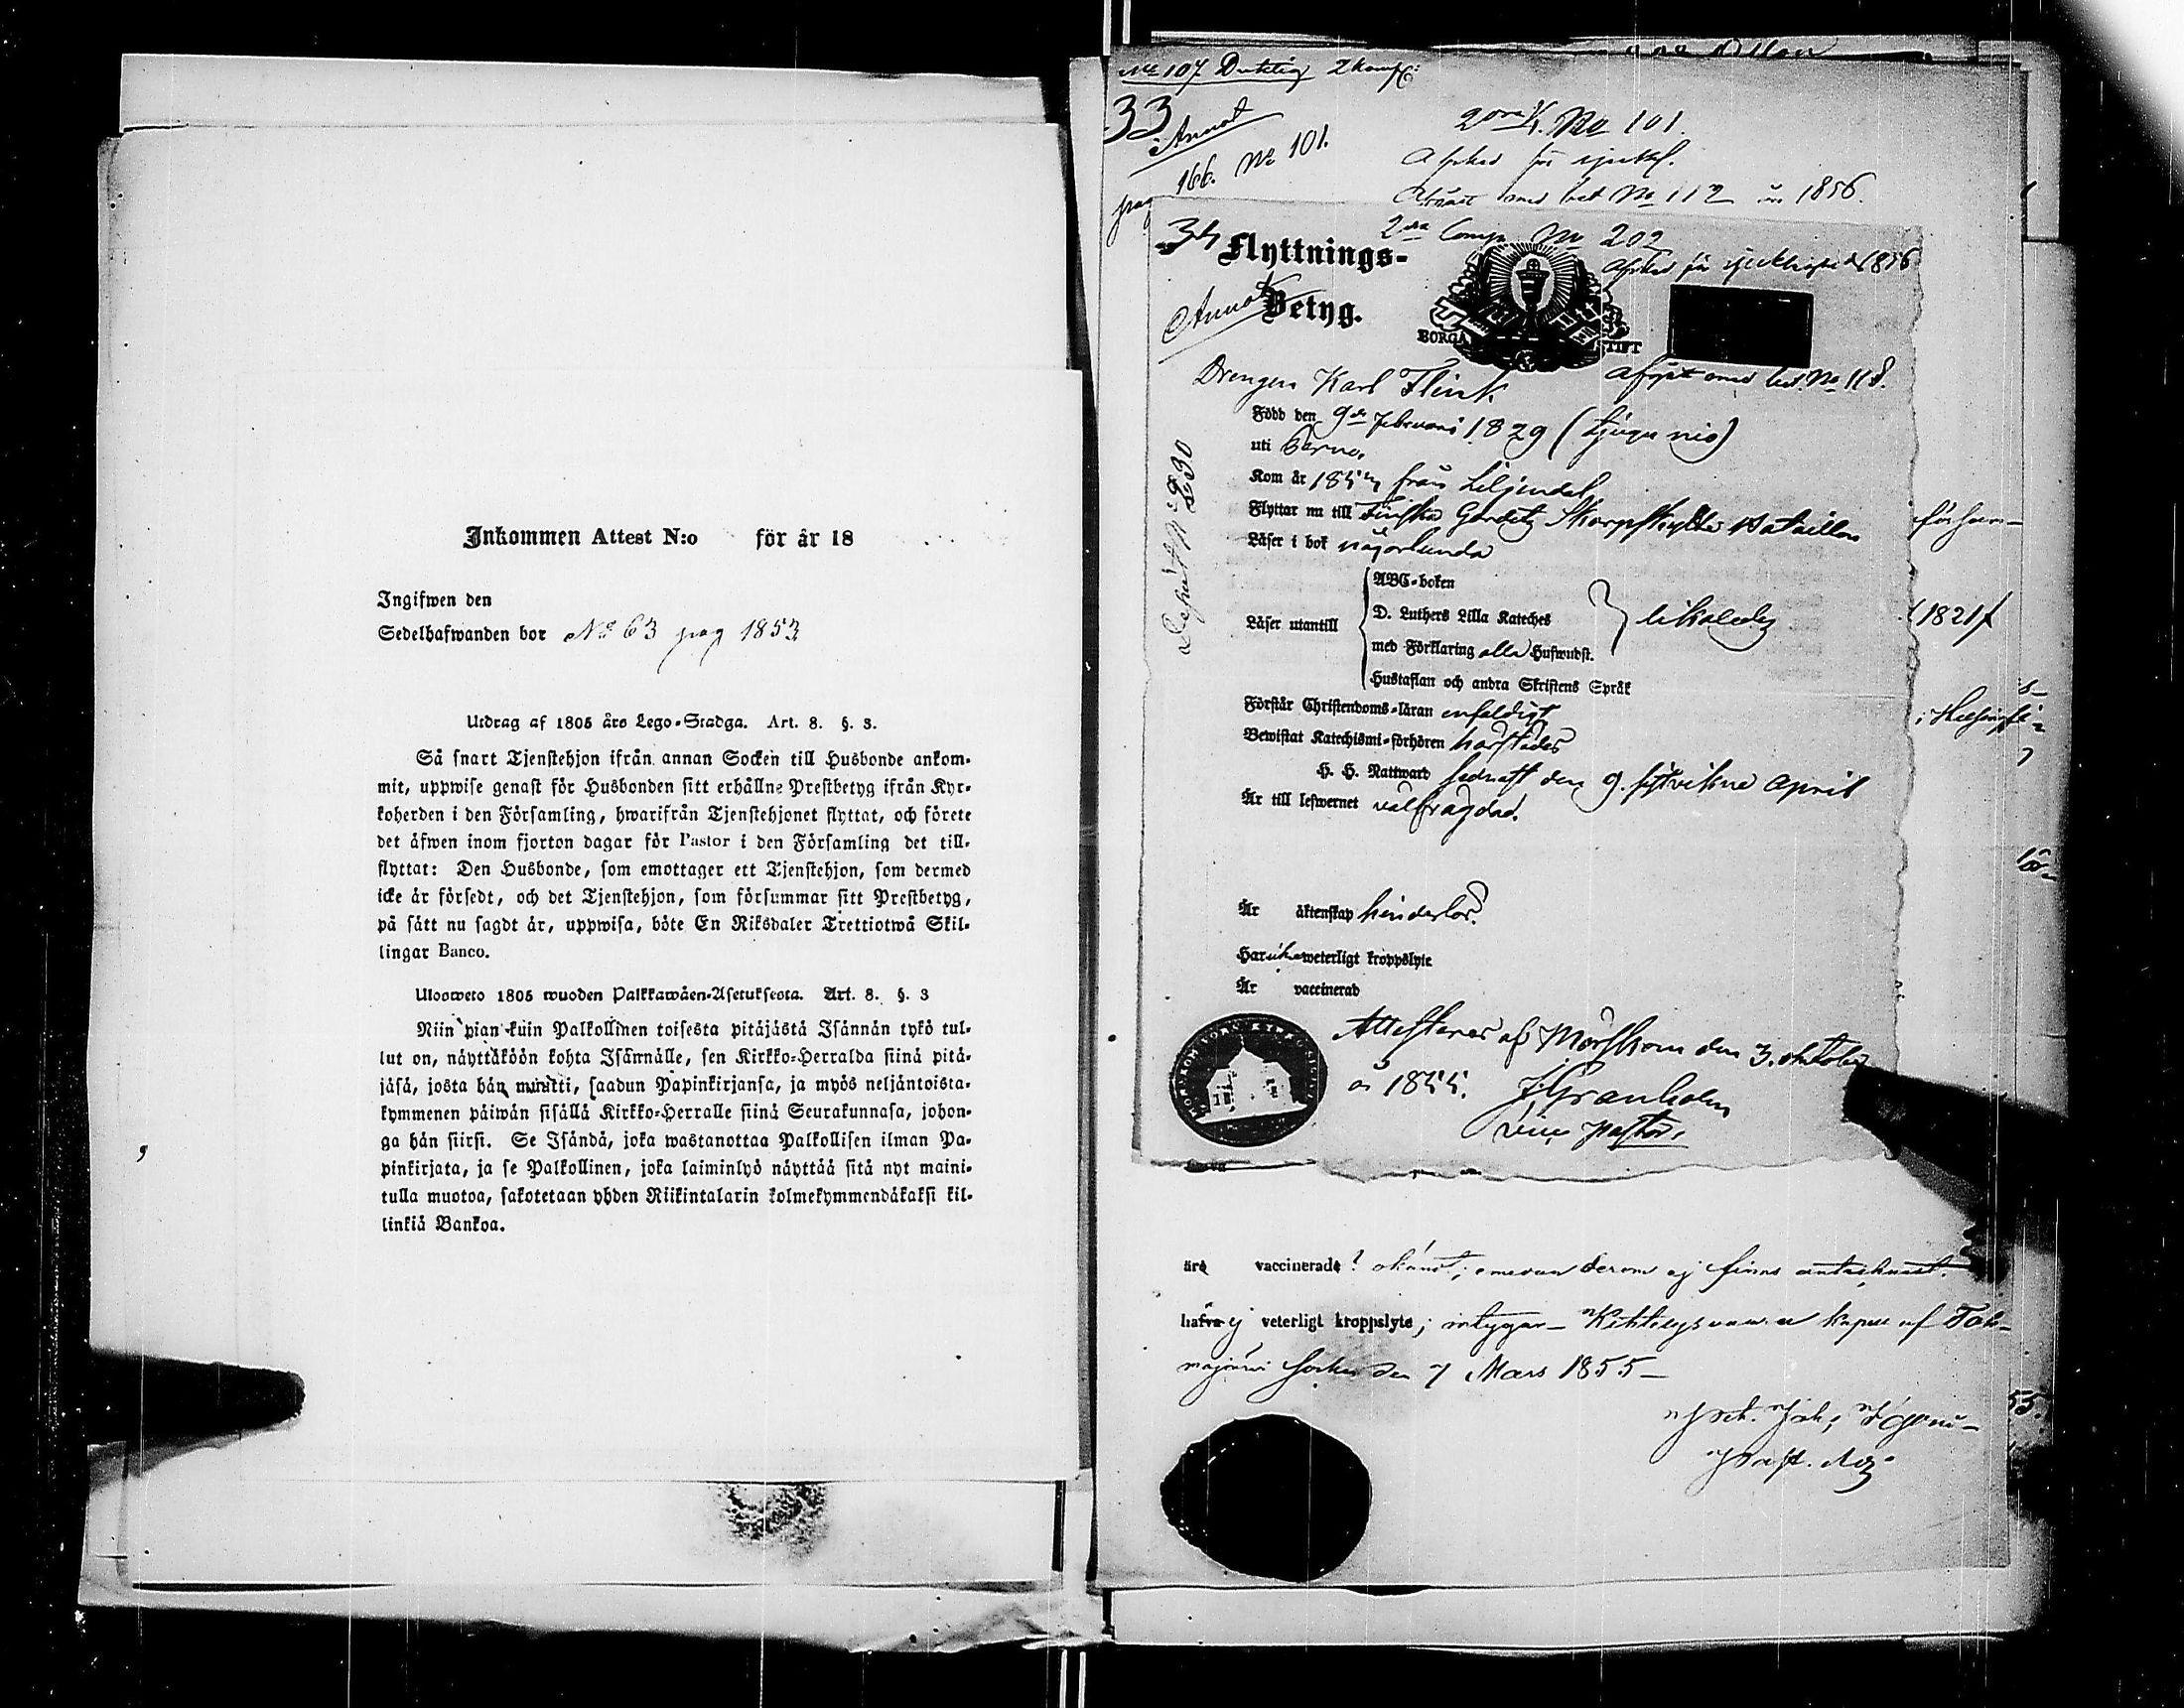 Inkommen Attest N:o för år 18
Ingifwen den
Sedelhafwanden bor No 63 pag 1853
Utdrag af 1805 års Lego-Stadga. Art. 8. §. 3.
Så snart Tjenstehjon ifrån annan Socken till Husbonde ankom-
mit, uppwise genast för Husbonden sitt erhållne Prestbetyg ifrån Kyr-
koherden i den Församling, hwarifrån Tjenstehjonet flyttat, och förete
det äfwen inom fjorton dagar för Pastor i den Församling det till-
flyttat: Den Husbonde, som emottager ett Tjenstehjon, som dermed
icke är försedt, och det Tjenstehjon, som försummar sitt Prestbetyg,
på sätt nu sagdt är, uppwisa, böte En Riksdaler Trettiotwå Skil-
lingar Banco.
Uloosweto 1805 wuoden Palkkawäen-Asetuksesta. Art. 8. §. 3
Niin pian kuin Palkollinen toisesta pitäjästä Isännän tykö tul-
lut on, näyttäköön kohta Isännälle, sen Kirkko-Herralda siinä pitä-
jäsä, josta hän muutti, saadun Papinkirjansa, ja myös neljäntoista-
kymmenen päiwän sisällä Kirkko-Herralle siinä Seurakunnasa, johon-
ga hän siirsi. Se Isändä, joka wastanottaa Palkollisen ilman Pa-
pinkirjata, ja se Palkollinen, joka laiminlyö näyttää sitä nyt maini-
tulla muotoa, sakotetaan yhden Riikintalarin kolmekymmendäkaksi kil-
linkiä Bankoa.
No 107 2 komp
33
Annot
pag 166. No 101.
2dra No 101.
med bet No 112 år 1856.
2dra Comp. No 202
34 Flyttnings-
Betyg.
Annot
BORGÅ STIFT
1856
med bet. No 118.
Drengen Karl Flink
Född den 9de Februari 1829 (tjugu nio)
uti Perno.
Kom år 1854 från Liljendal
Flyttar nu till Finska Gardets Skarpskytte Bataillon
Läser i bok någorlunda
Läser utantill
ABC-boken
D. Luthers Lilla Kateches
med Förklaring alla Hufwudst.
Hustaflan och andra Skriftens Språk
likaledes
Förstår Christendoms-läran enfaldigt
Bewistat Katechismi-förhören
H. H. Nattward sednast den 9. April
Är till lefwernet välfrägdad.
Är äktenskap hinderlös.
Har icke weterligt kroppslyte
Är vaccinerad
Attesteras af Mörskom den 3. oktober
år 1855. J Granholm
vice pastor.
1821
äro vaccinerade? okändt; emedan derom ej finns antecknadt.
hafva ej veterligt kroppslyte; intygar Kihtelysvaara kapell af Toh-
majärvi socken den 7 Mars 1855
55.